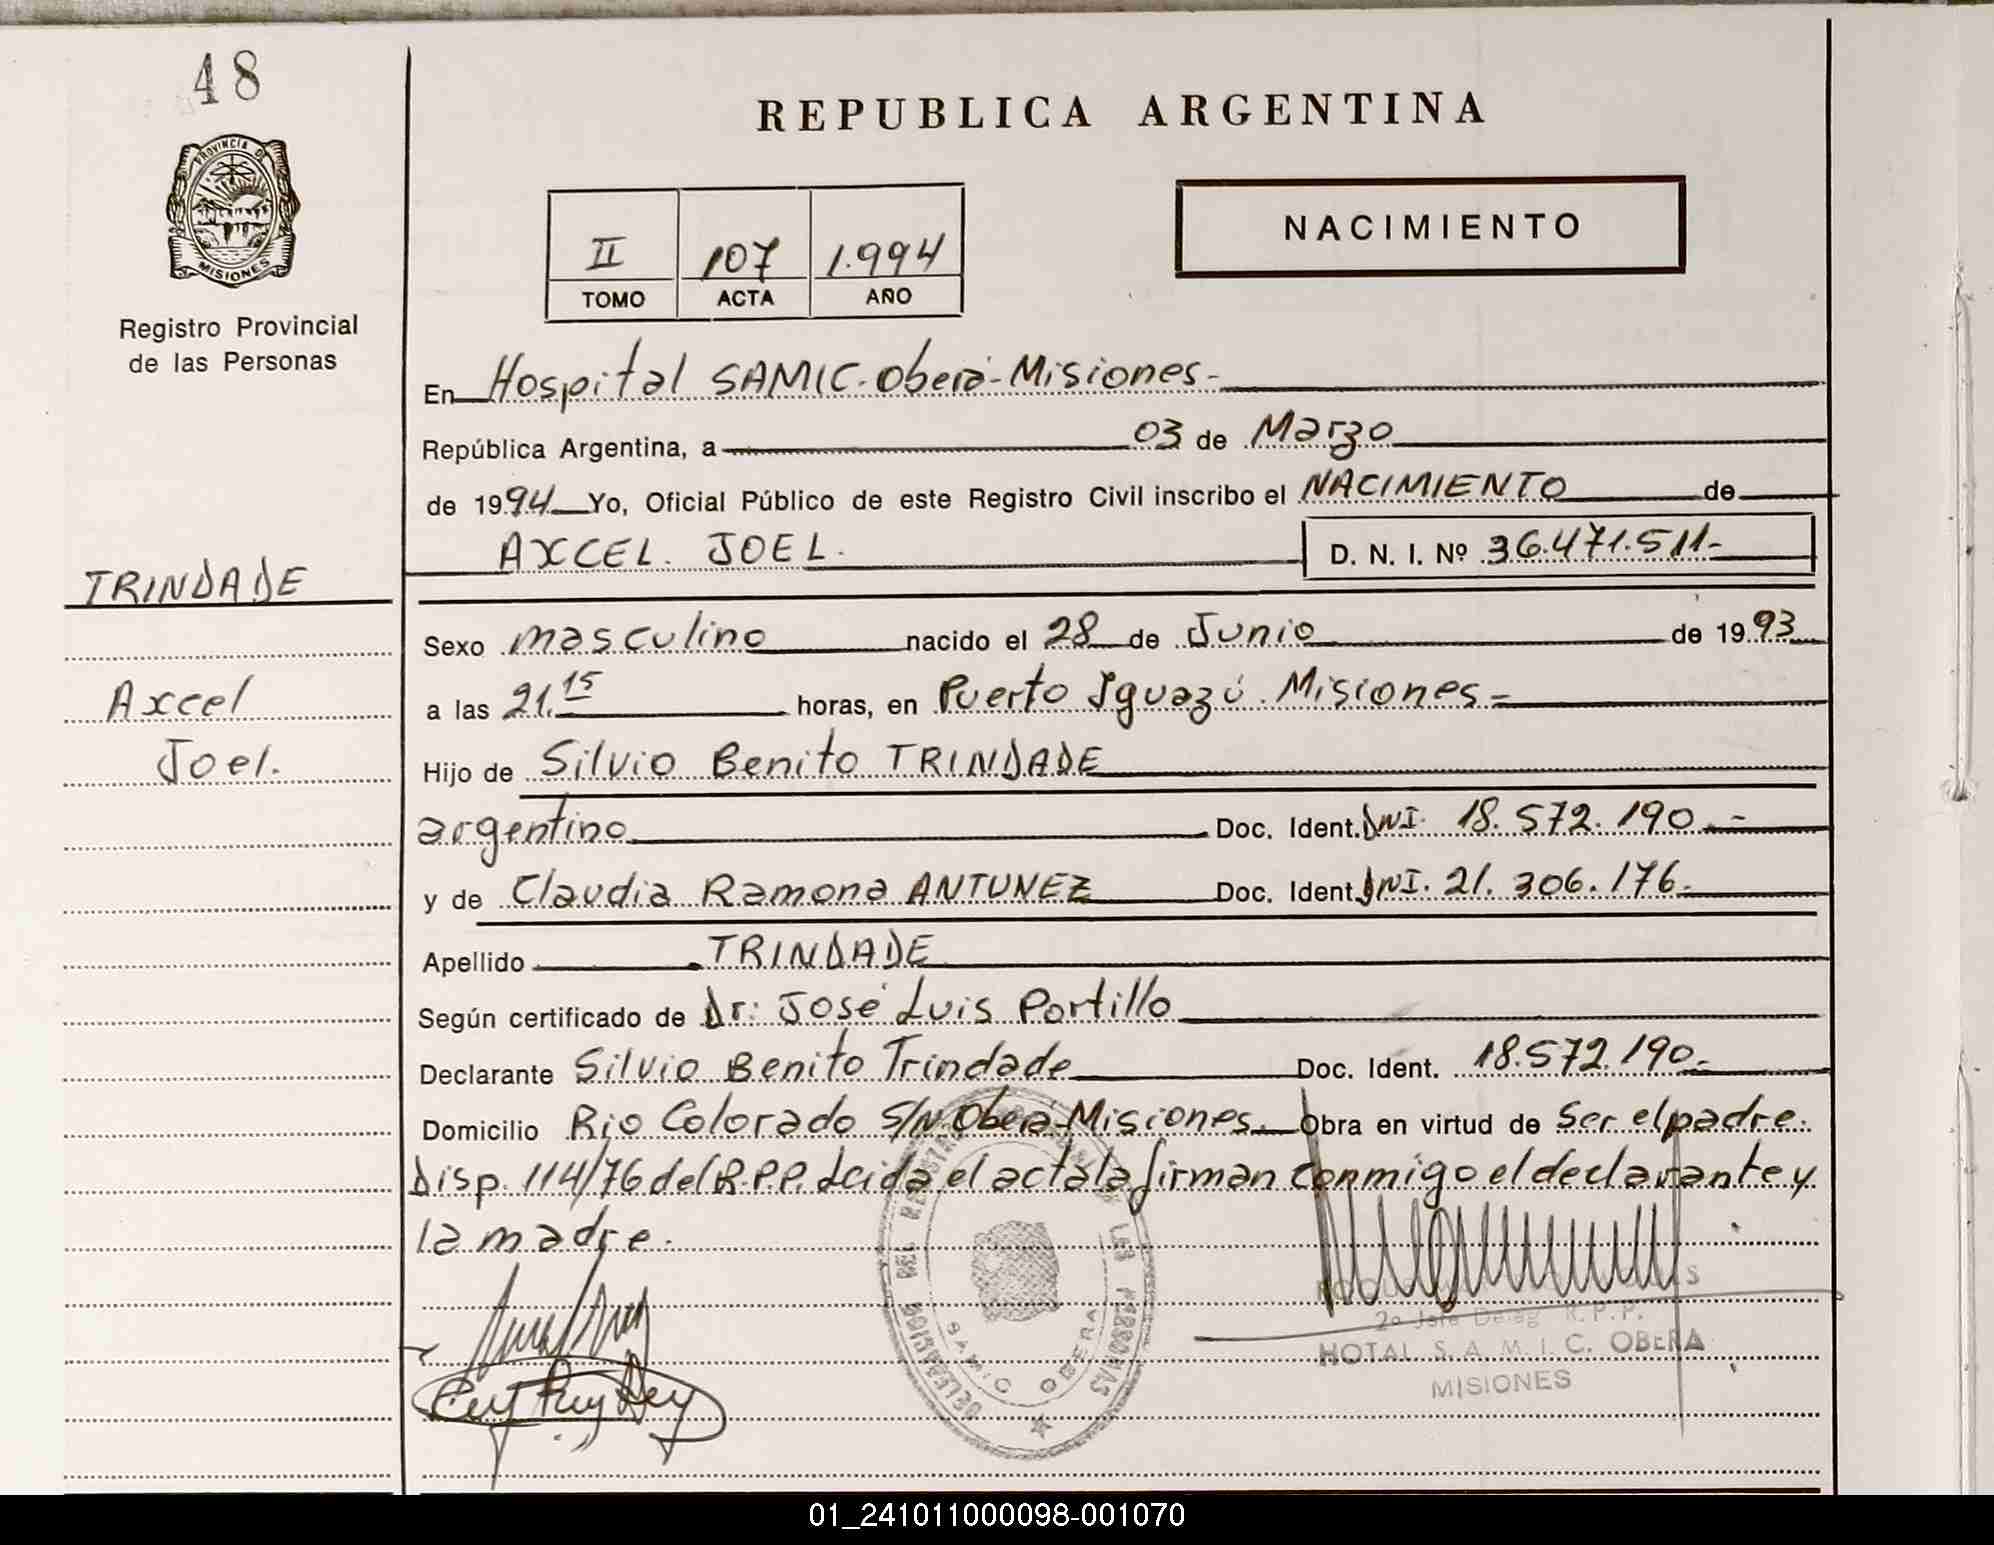 48
PROVINCIA DE
MISIONES
Registro Provincial
de las Personas
REPUBLICA ARGENTINA
II 107 1.994
TOMO ACTA AÑO
NACIMIENTO
En Hospital SAMIC. Oberá - Misiones -
República Argentina, a 03 de Marzo
de 1994 Yo, Oficial Público de este Registro Civil inscribo el NACIMIENTO de
AXCEL JOEL. D. N. I. Nº 36.471.511-
TRINDADE
Axcel
Joel.
Sexo masculino nacido el 28 de Junio de 1993
a las 21.15 horas, en Puerto Iguazú. Misiones =
Hijo de Silvio Benito TRINDADE
argentino Doc. Ident. DNI. 18.572.190.-
y de Claudia Ramona ANTUNEZ Doc. Ident. DNI. 21.306.176.
Apellido TRINDADE
Según certificado de Dr: José Luis Portillo
Declarante Silvio Benito Trindade Doc. Ident. 18.572.190.
Domicilio Rio Colorado S/N. Oberá - Misiones. Obra en virtud de ser el padre.
Disp. 114/76 del R.P.P. Leida el acta la firman conmigo el declarante y
la madre.
DELEGACION LAS PERSONAS
SAMIC OBERA
2º Jefe Deleg R.P.P.
HOTAL S. A. M. I. C. OBERA
MISIONES
01_241011000098-001070